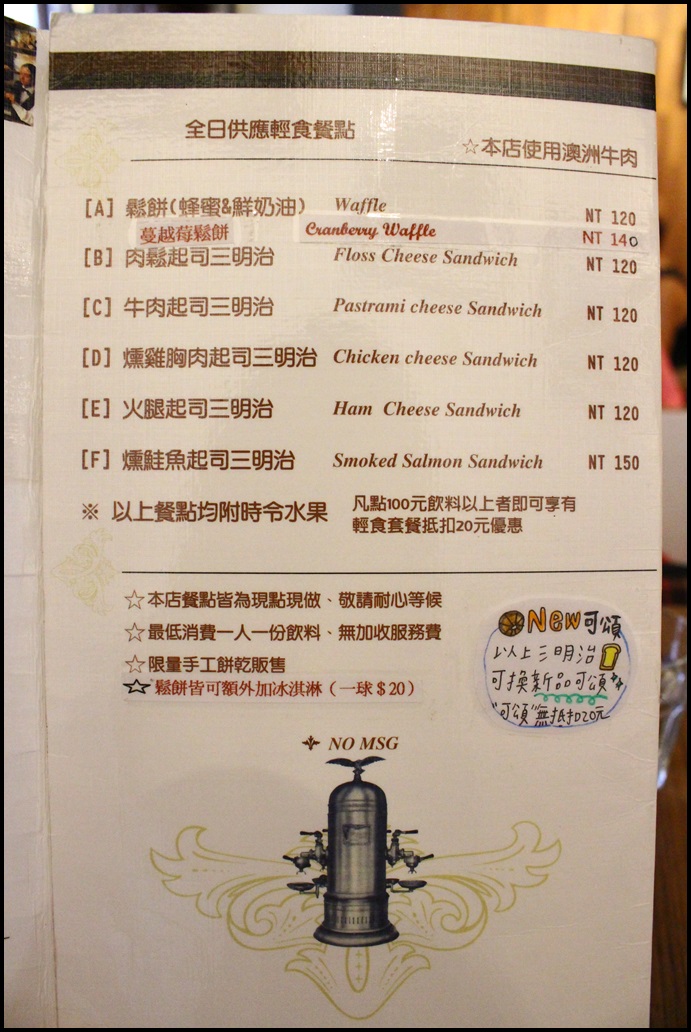 全日供應輕食餐點
☆本店使用澳洲牛肉
[A] 鬆餅(蜂蜜&鮮奶油) Waffle NT 120
蔓越莓鬆餅 Cranberry Waffle NT 140
[B] 肉鬆起司三明治 Floss Cheese Sandwich NT 120
[C] 牛肉起司三明治 Pastrami cheese Sandwich NT 120
[D] 燻雞胸肉起司三明治 Chicken cheese Sandwich NT 120
[E] 火腿起司三明治 Ham Cheese Sandwich NT 120
[F] 燻鮭魚起司三明治 Smoked Salmon Sandwich NT 150
※ 以上餐點均附時令水果
凡點100元飲料以上者即可享有
輕食套餐抵扣20元優惠
☆本店餐點皆為現點現做、敬請耐心等候
☆最低消費一人一份飲料、無加收服務費
☆限量手工餅乾販售
☆鬆餅皆可額外加冰淇淋（一球＄20）
New可頌
以上三明治
可換新品可頌
"可頌"無抵扣20元
NO MSG